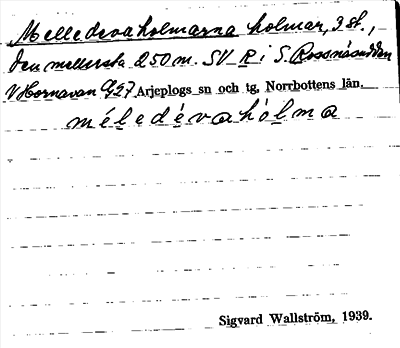 Melledevaholmarna holmar, 3 st.,
den mellersta 250 m. SV R i S. Rossnäsudden
V Hornavan 9g27 Arjeplogs sn och tg, Norrbottens län.
méledévahólma
Sigvard Wallström, 1939.